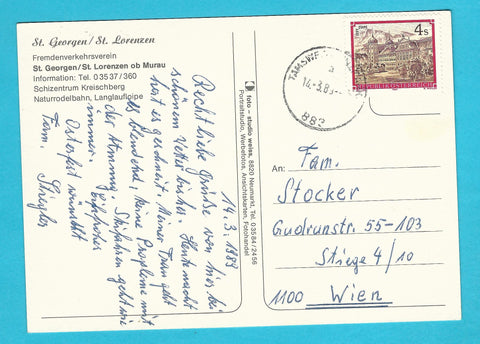 St. Georgen / St. Lorenzen
Fremdenverkehrsverein
St. Georgen/St. Lorenzen ob Murau
Information: Tel. 0 35 37 / 360
Schizentrum Kreischberg
Naturrodelbahn, Langlaufloipe
14.3.1989
Recht liebe Grüße von hier bei
schönem Wetter bisher. Heute nacht
hat es geschneit. Meiner Frau geht
es blendend, keine Probleme mit
der Atmung. Skifahren geht wie
immer.
Osterfest wünscht
Fam.
foto – studio weiss, 8820 Neumarkt, Tel. 0 35 84 / 24 56
Portraitstudio, Werbefotos, Ansichtskarten, Fotohandel
14.-3.89
a
4 S
REPUBLIK ÖSTERREICH
An:
Fam.
Stocker
Gudrunstr. 55-103
Stiege 4/10
1100 Wien